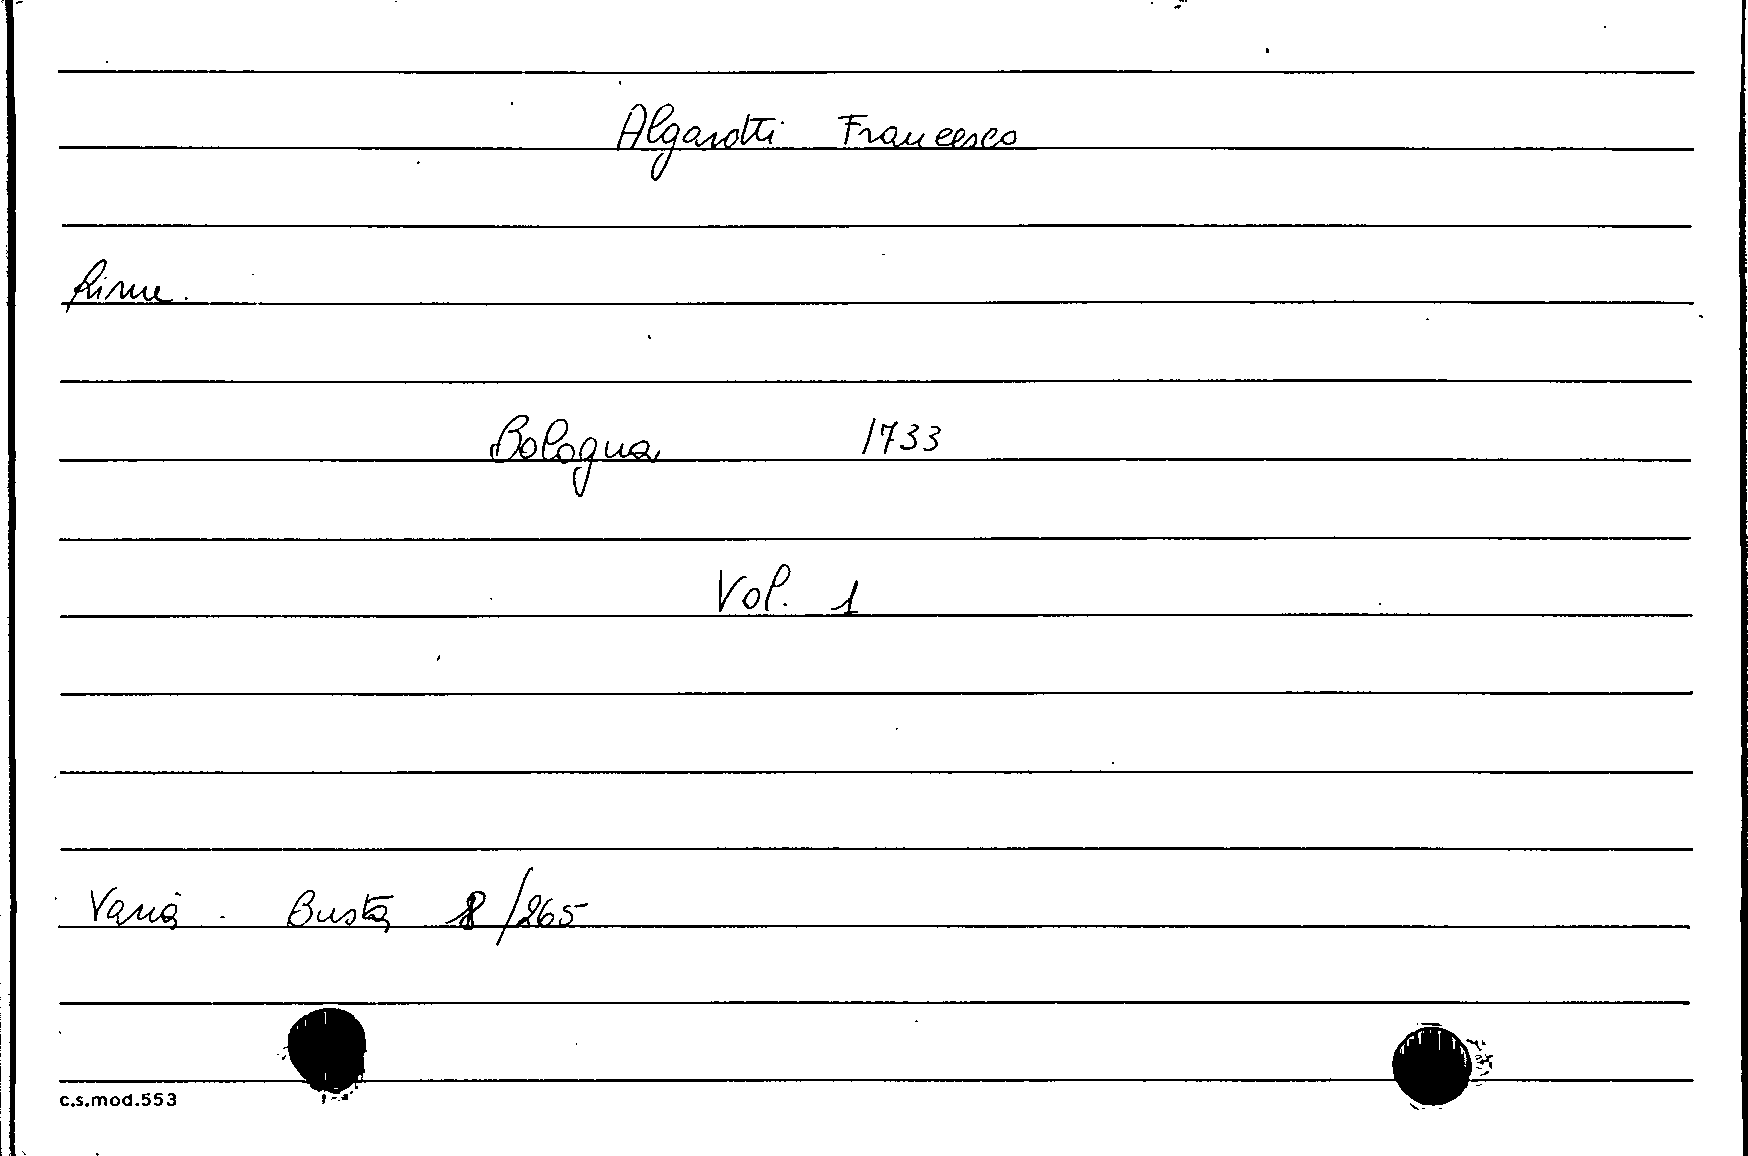 Algarotti Francesco
Rime.
Bologna 1733
Vol. 1
Varia. Busta 8/265
c.s.mod.553